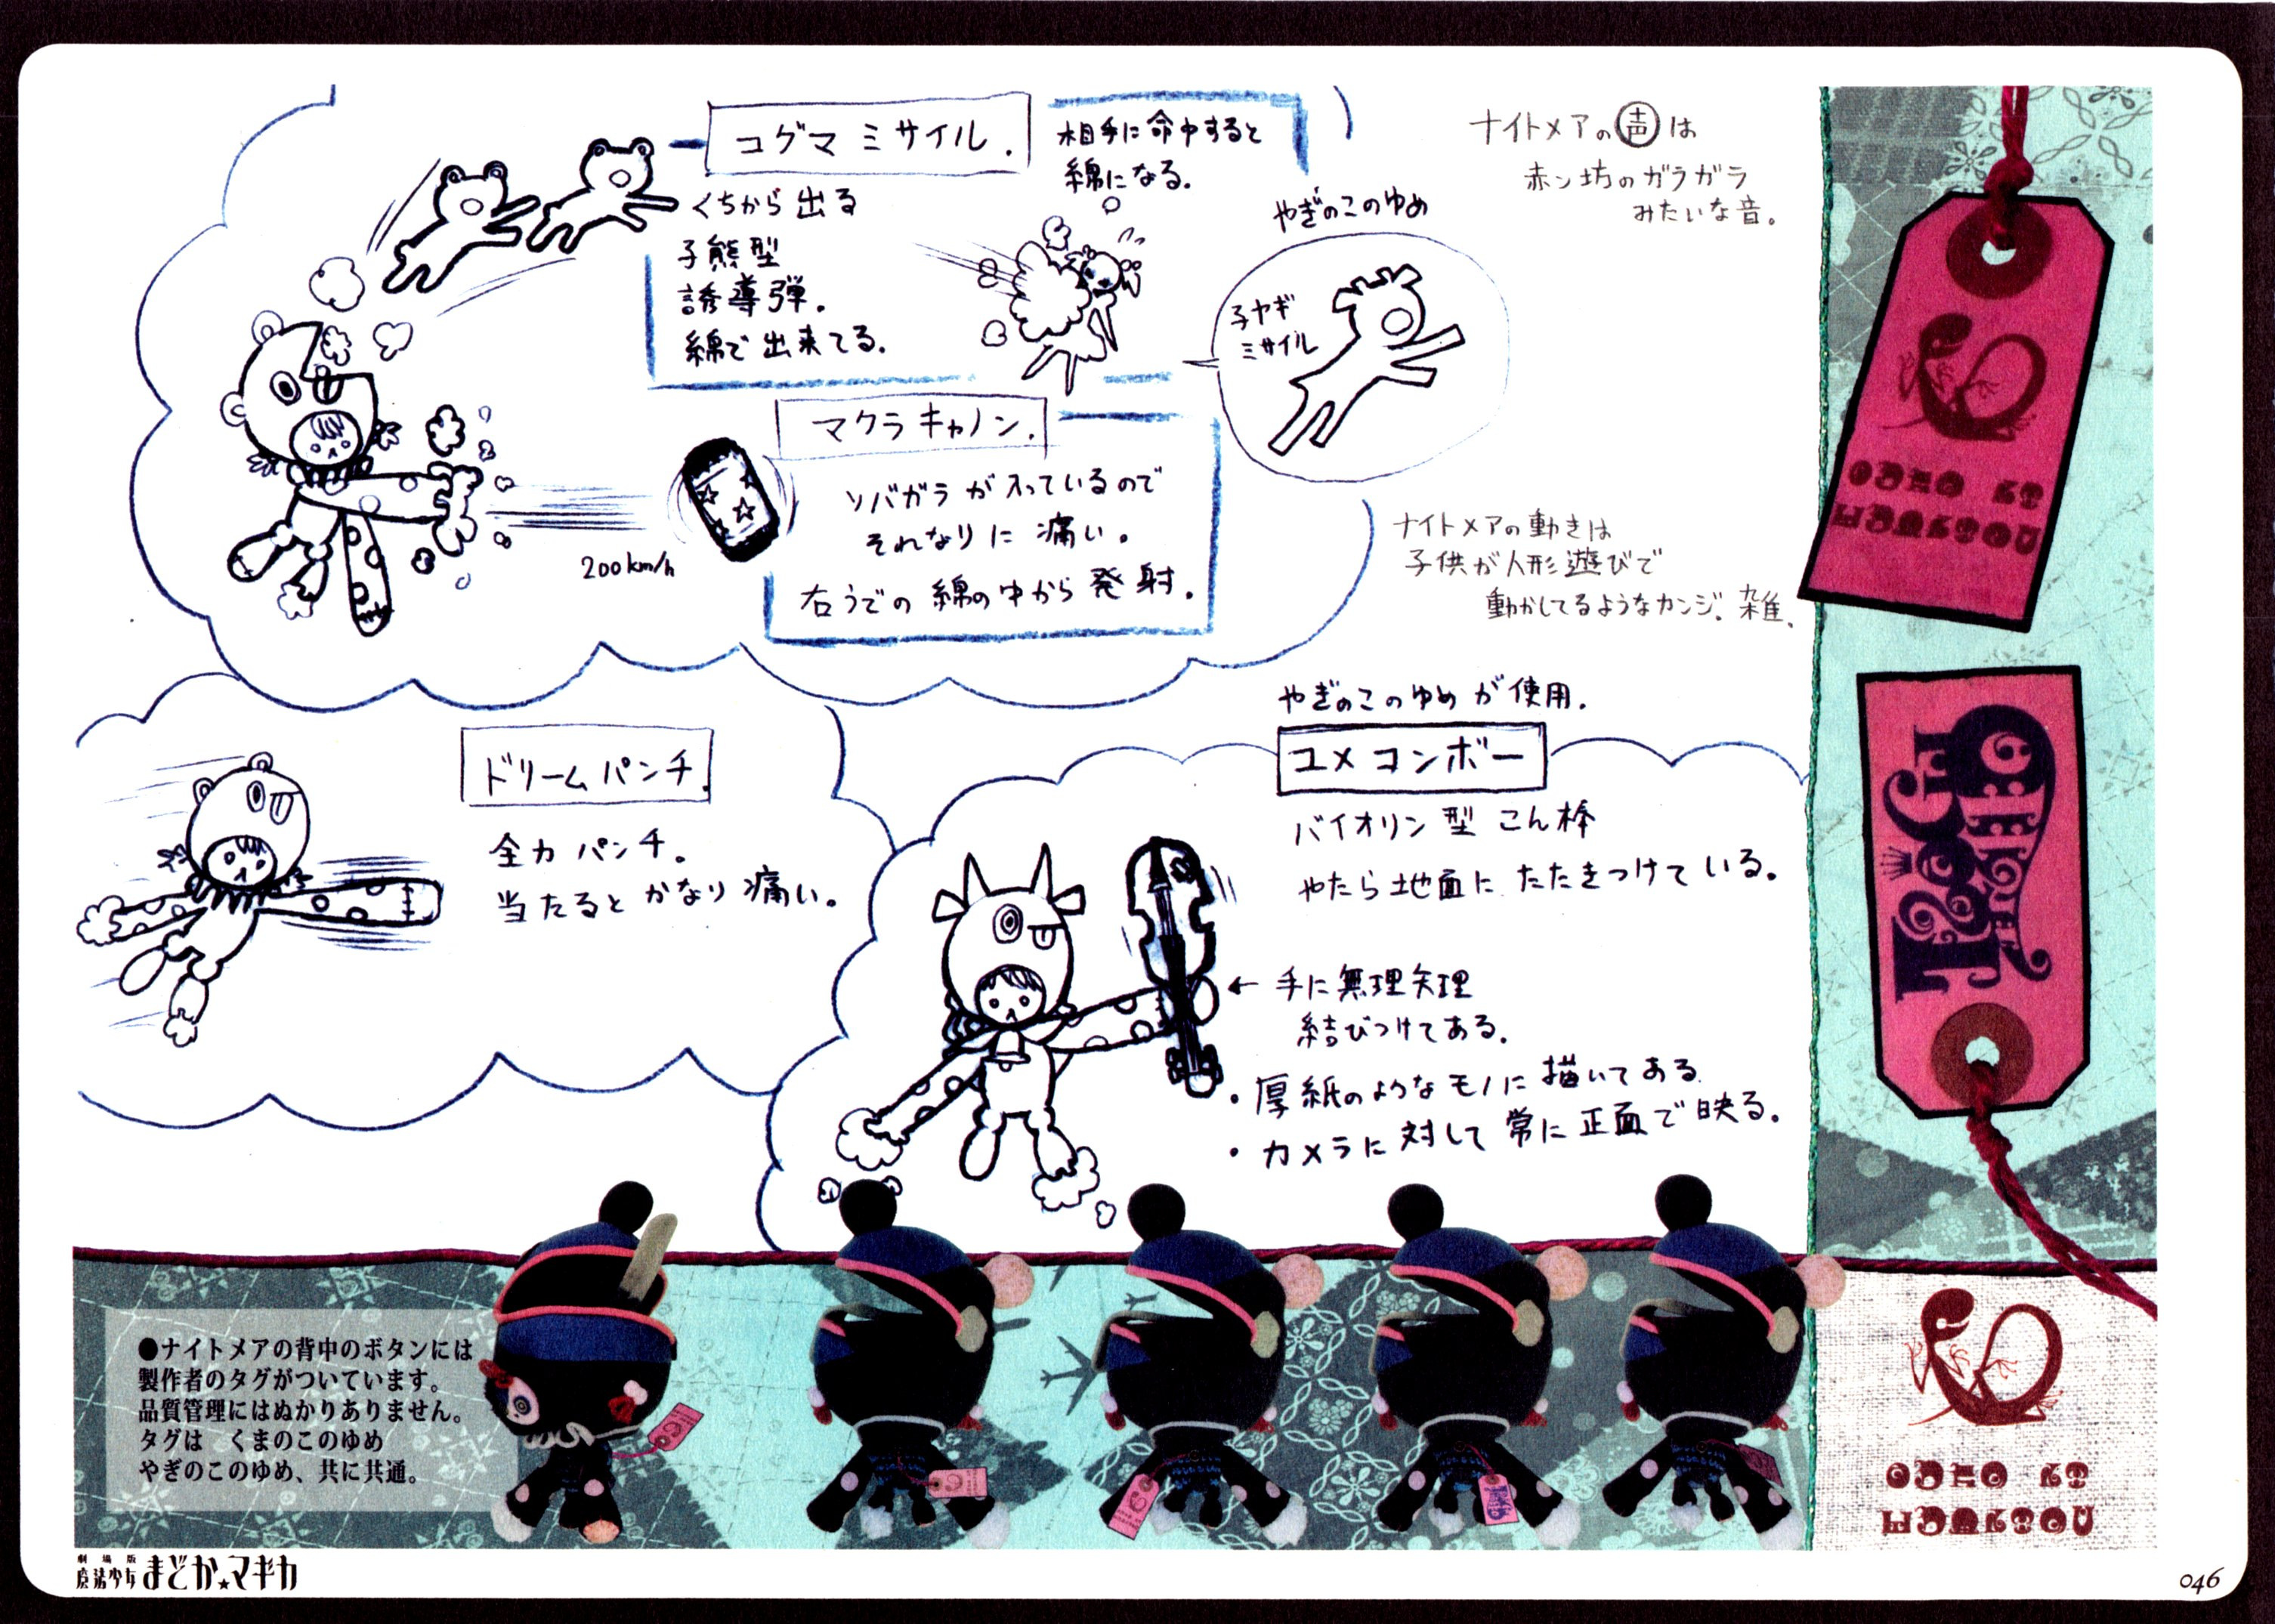 コグマ ミサイル.
くちから出る
子熊型
誘導弾.
綿で出来てる.
相手に命中すると
綿になる.
やぎのこのゆめ
子ヤギ
ミサイル
ナイトメアの声は
赤ン坊のガラガラ
みたいな音。
マクラキャノン.
ソバガラが入っているので
それなりに痛い。
右うでの綿の中から発射.
200km/h
ナイトメアの動きは
子供が人形遊びで
動かしてるようなカンジ. 雑.
ドリームパンチ.
全力パンチ。
当たるとかなり痛い.
やぎのこのゆめが使用.
ユメコンボー
バイオリン型こん棒
やたら地面にたたきつけている.
← 手に無理矢理
結びつけてある.
・厚紙のようなモノに描いてある
・カメラに対して常に正面で映る.
●ナイトメアの背中のボタンには
製作者のタグがついています。
品質管理にはぬかりありません。
タグは　くまのこのゆめ
やぎのこのゆめ、共に共通。
劇場版
魔法少女まどか★マギカ
046